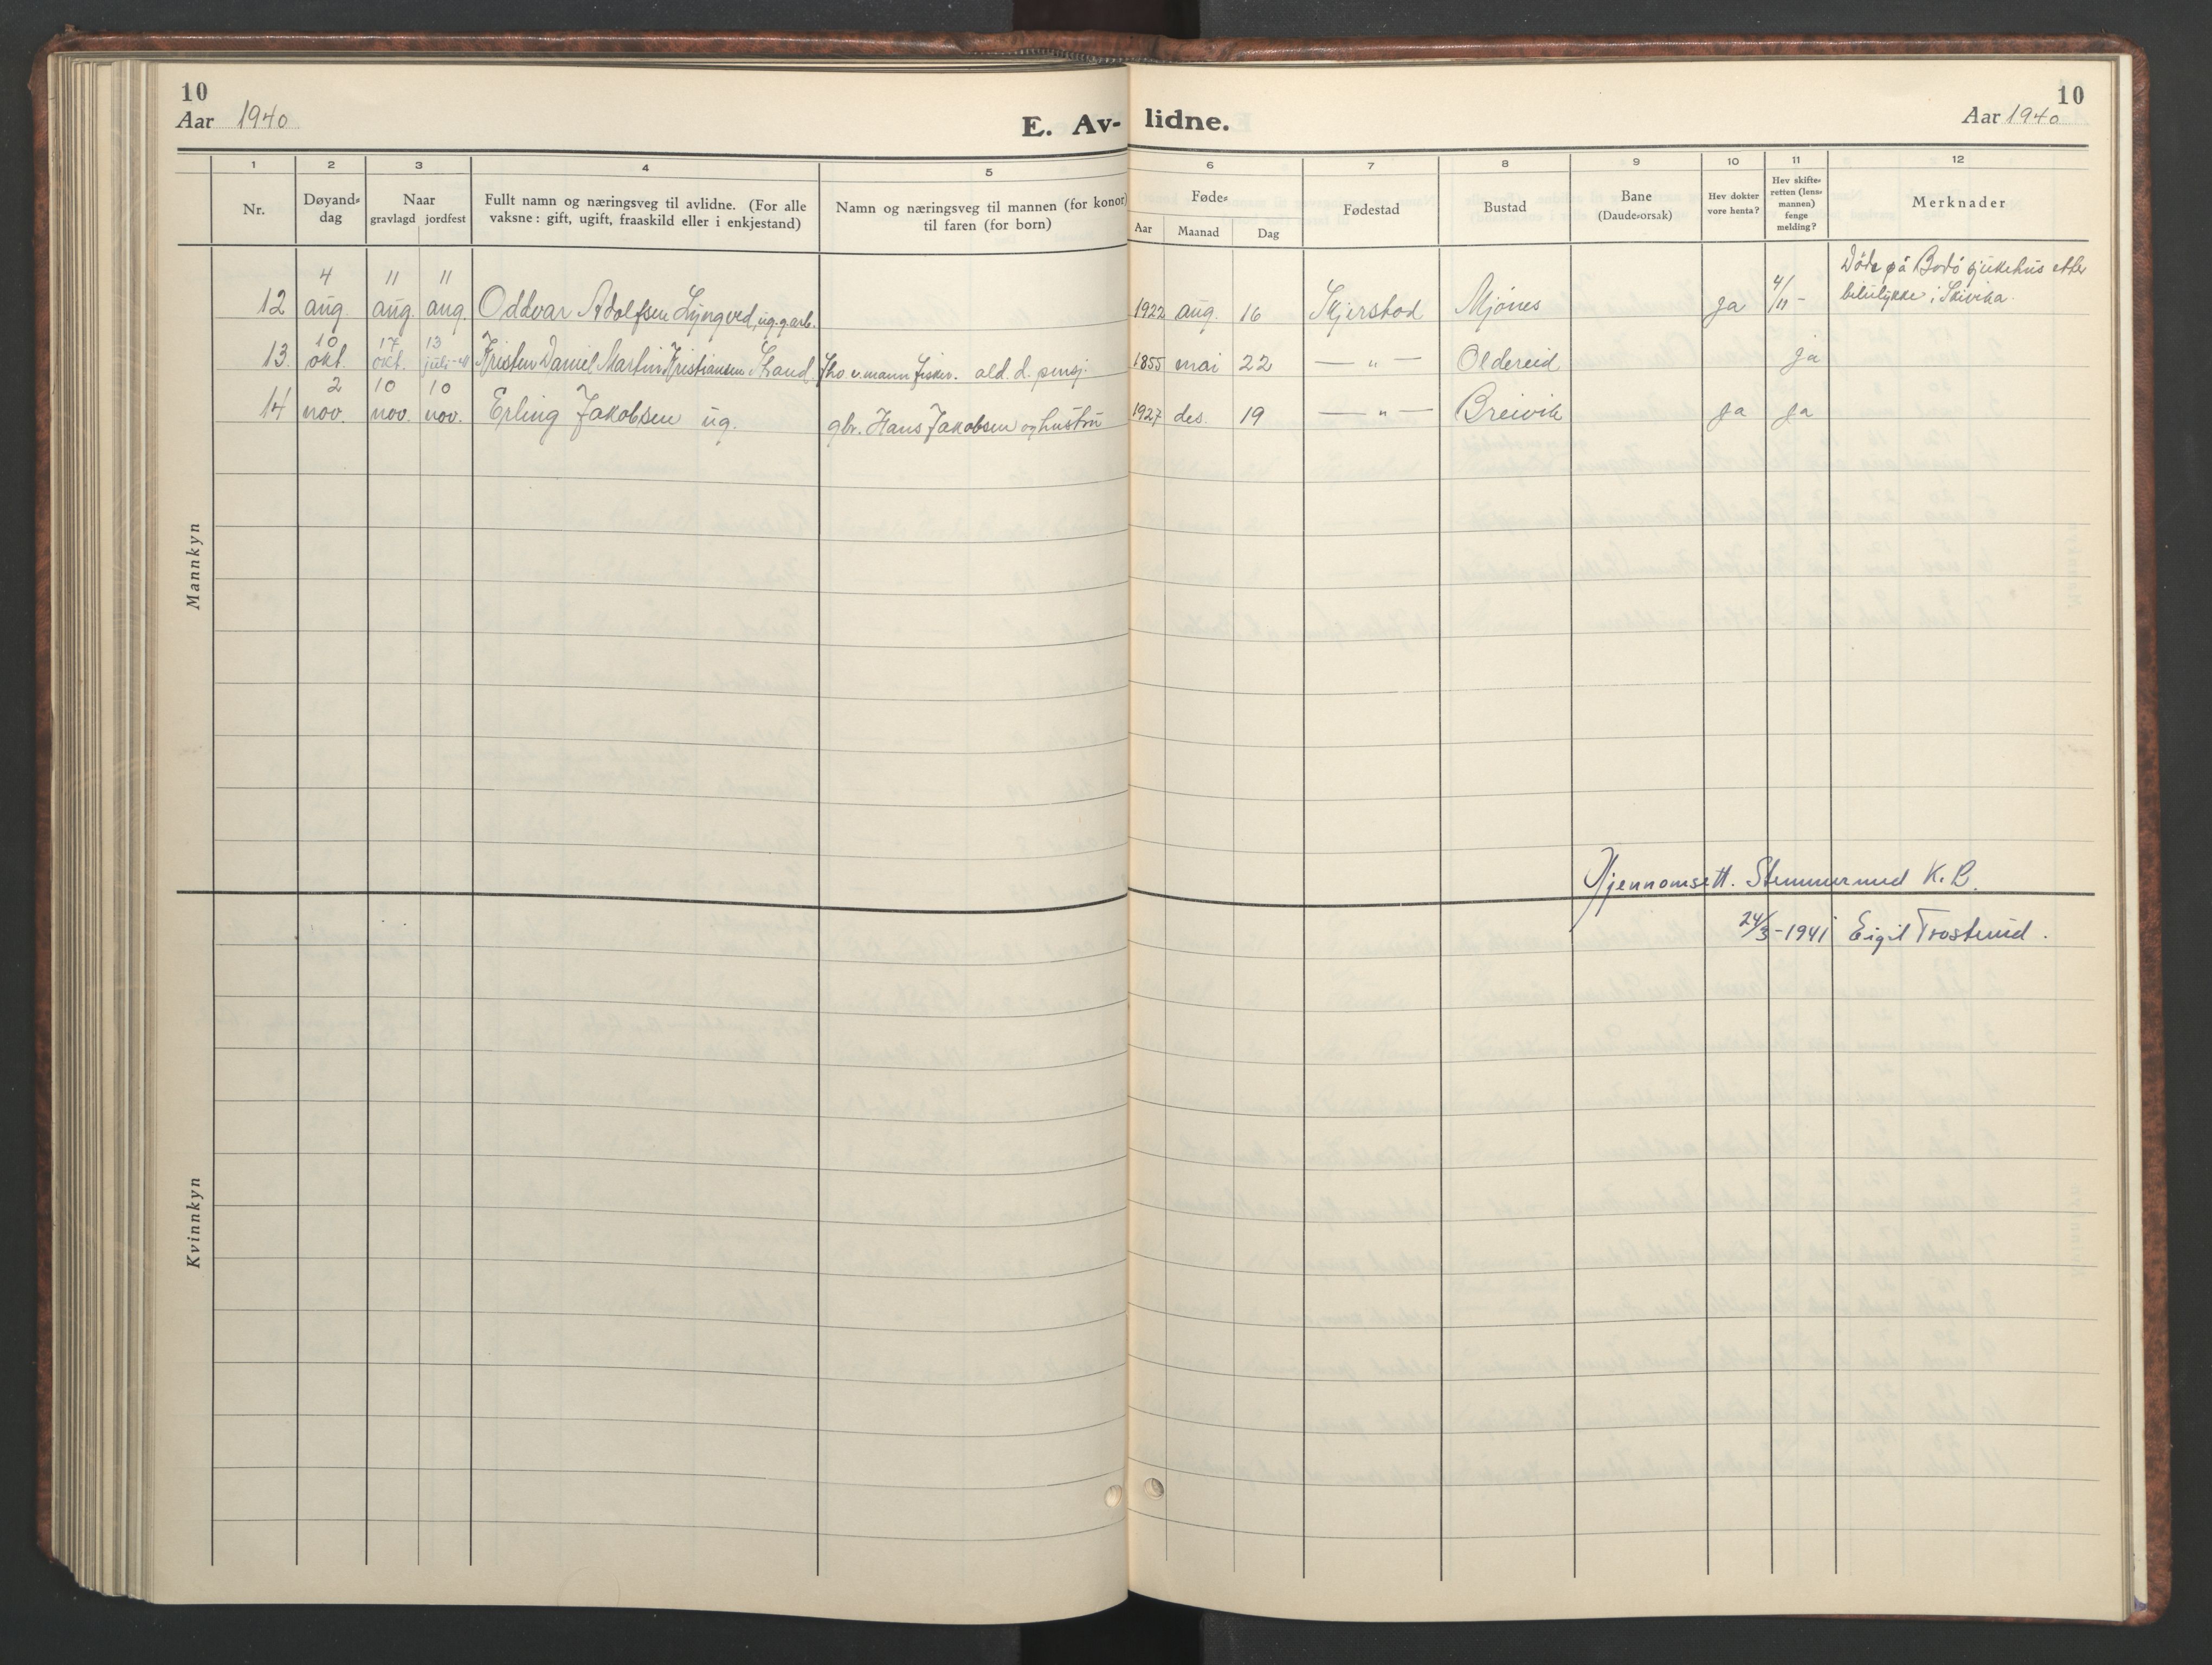 10
Aar 1940
E. Av-lidne.
10
Aar 1940
1 2 3 4 5 6 7 8 9 10 11 12
Nr.
Døyand-
dag
Naar
gravlagd jordfest
Fullt namn og næringsveg til avlidne. (For alle
vaksne: gift, ugift, fraaskild eller i enkjestand)
Namn og næringsveg til mannen (for konor)
til faren (for born)
Føde-
Aar Maanad Dag
Fødestad
Bustad
Bane
(Daude-orsak)
Hev dokter
vore henta?
Hev skifte-
retten (lens-
mannen)
fenge
melding?
Merknader
Mannkyn
12 4 aug. 11 aug. 11 aug. Oddvar Adolfsen Lyngved, ug. g.arb. 1922 aug. 16 Skjerstad Mjónes ja 4/11 -
Døde på Bodó sjukehus etter
bilulykke i Skivika.
13. 10 okt. 17 okt. 13 juli-41 Kristen Daniel Martin Kristiansen Strand, fho e.mann fisker. ald. d. pensj. 1855 mai 22 — " — Oldereid ja
14 2 nov. 10 nov. 10 nov. Erling Jakobsen ug. gbr. Hans Jakobsen og hustru 1927 des. 19 — " — Breivik ja ja
Gjennomsett. Stemmer med K. B.
24/3-1941 Eigil Trostmid.
Kvinnkyn